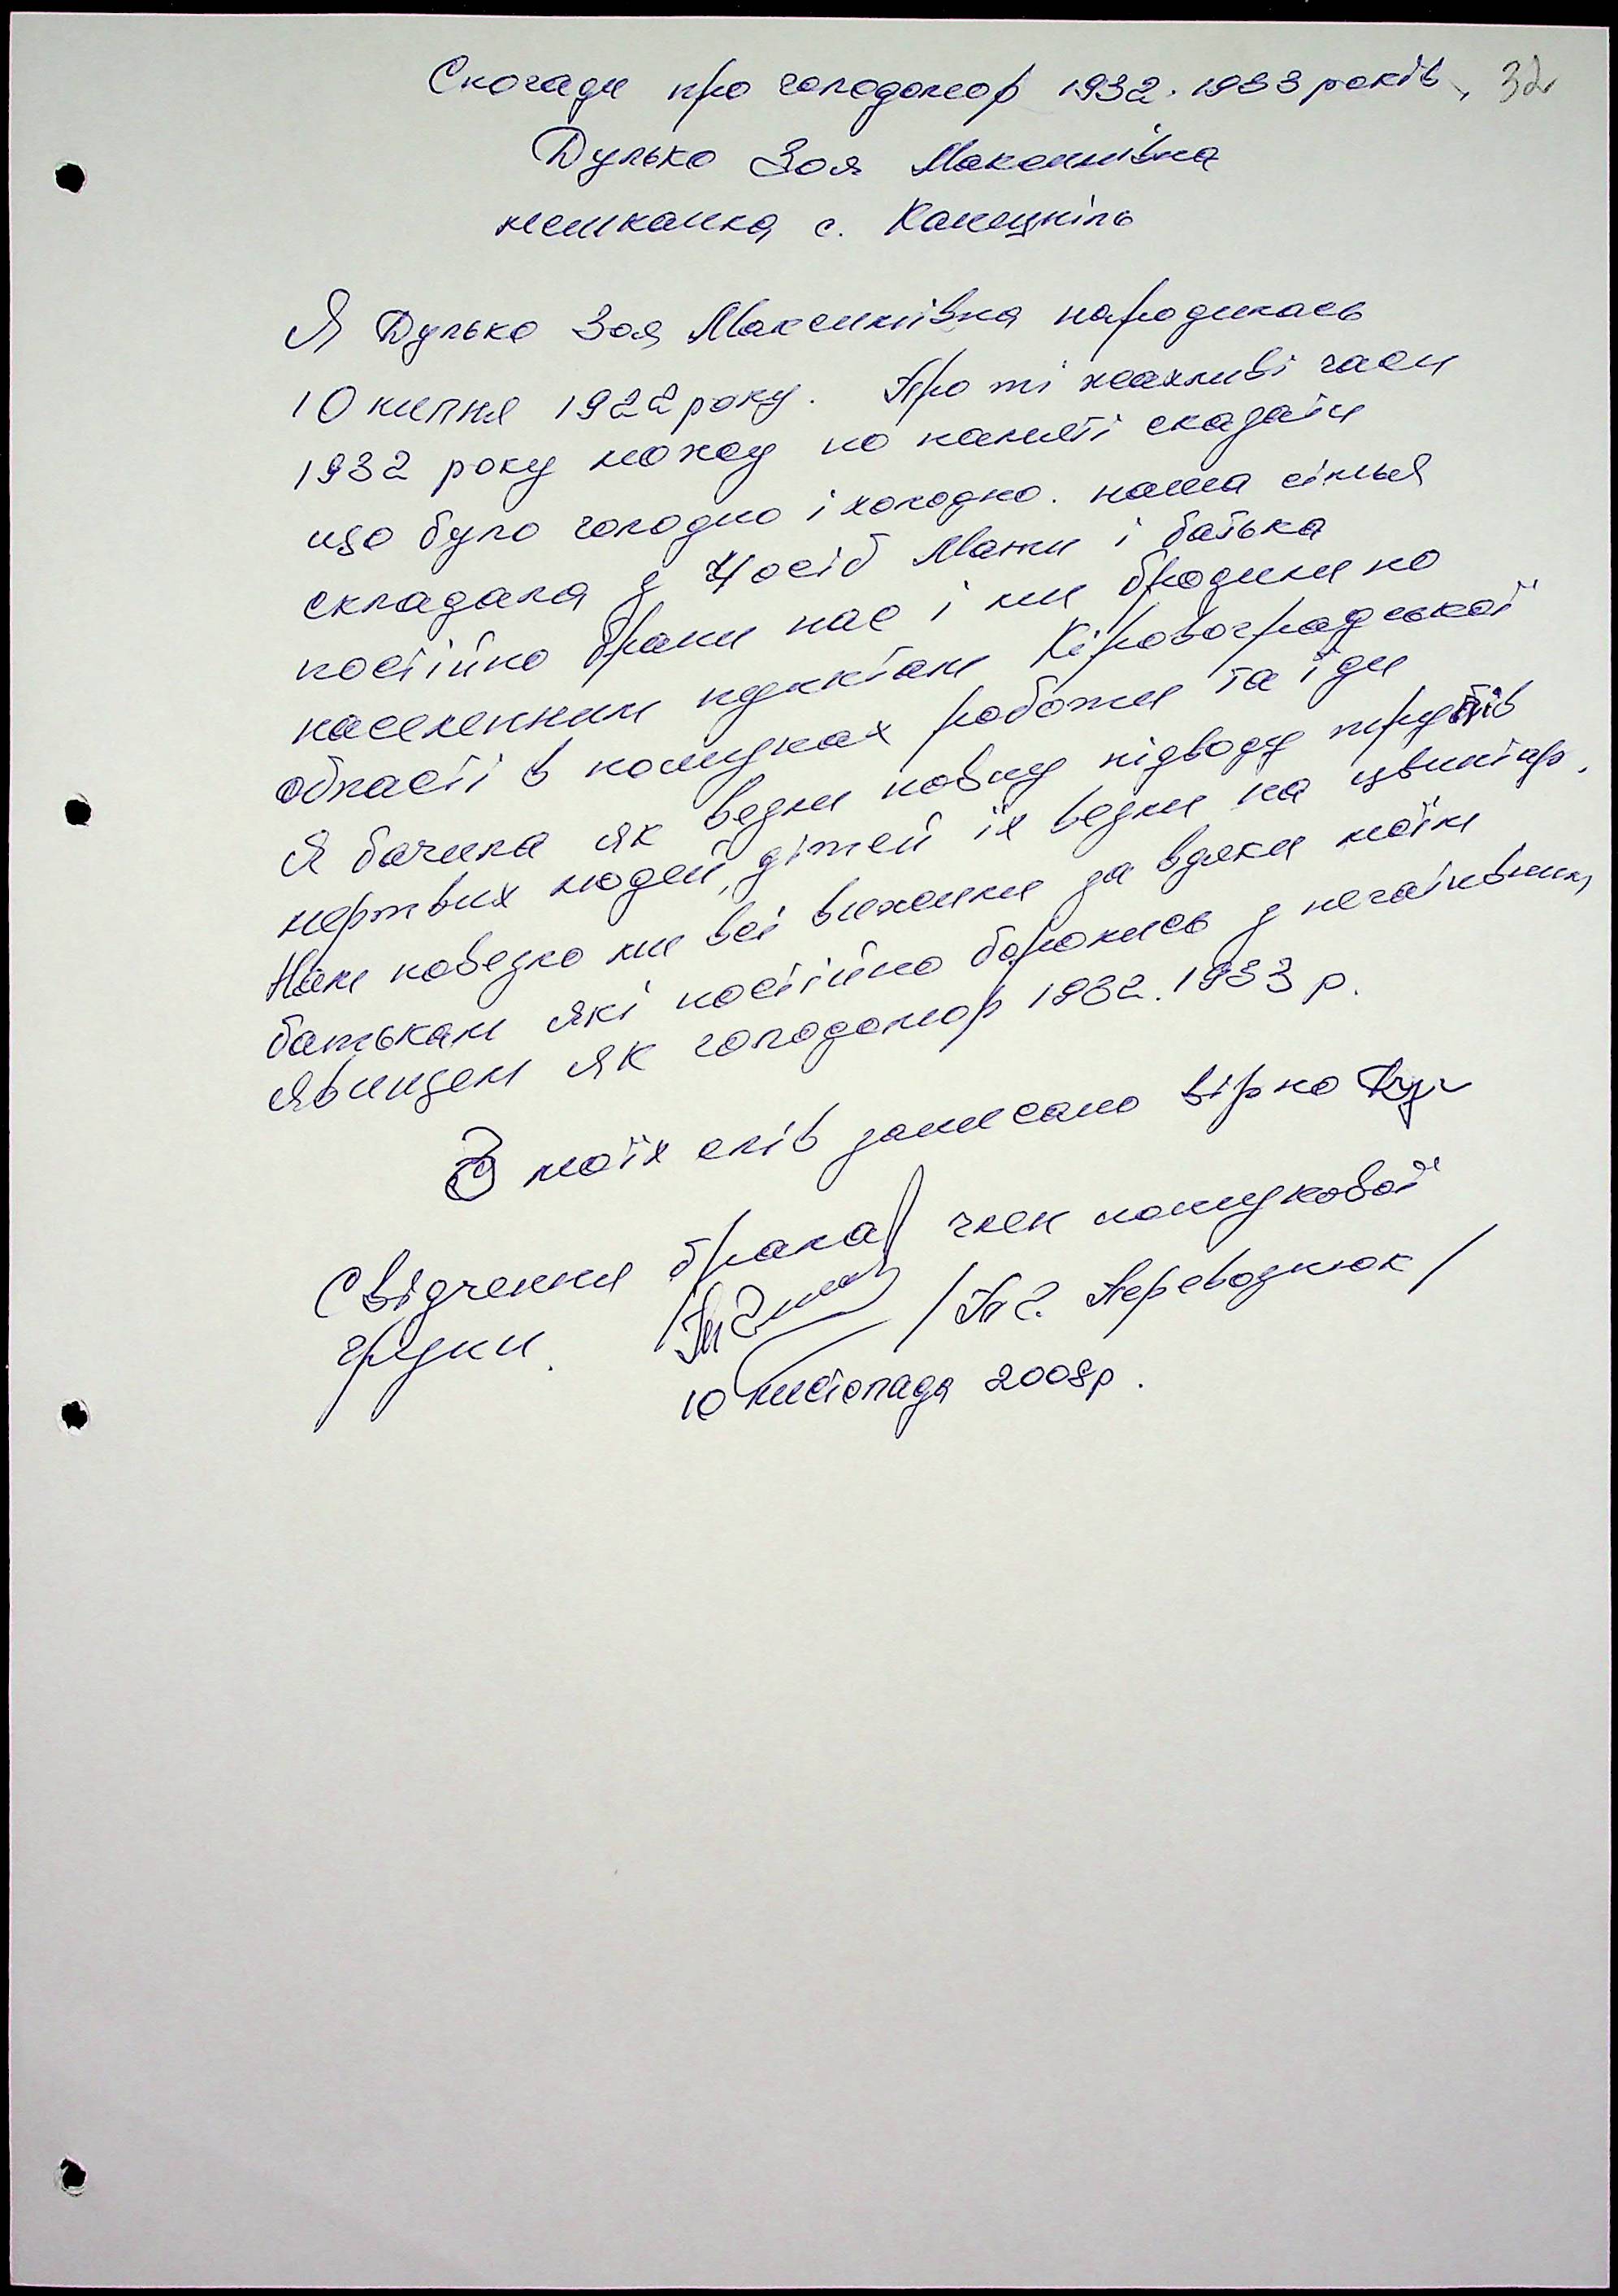 Спогади про голодомор 1932.1933 років, 32
Дулько Зоя Максимівна
мешканка с. Камецпіль
Я Дулько Зоя Максимівна народилась
10 липня 1922 року. Про ті жахливі часи
1932 року можу по памяті сказати
що було голодно і холодно. наша сімья
складала з 4 осіб Мати і батька
постійно брали нас і ми бродили по
населенним пунктам Кіровоградської
області в пошуках роботи та їди
Я бачила як везли повну підводу трупів
мертвих людей, дітей їх везли на цвинтар.
Нам повезло ми всі вижили за вдяки моїм
батькам які постійно боролись з негативним
явищем як голодомор 1932.1933 р.
З моїх слів записано вірно
Свідчення брала член пошукової
групи. /П Г. Переводнюк/
10 листопада 2008р.